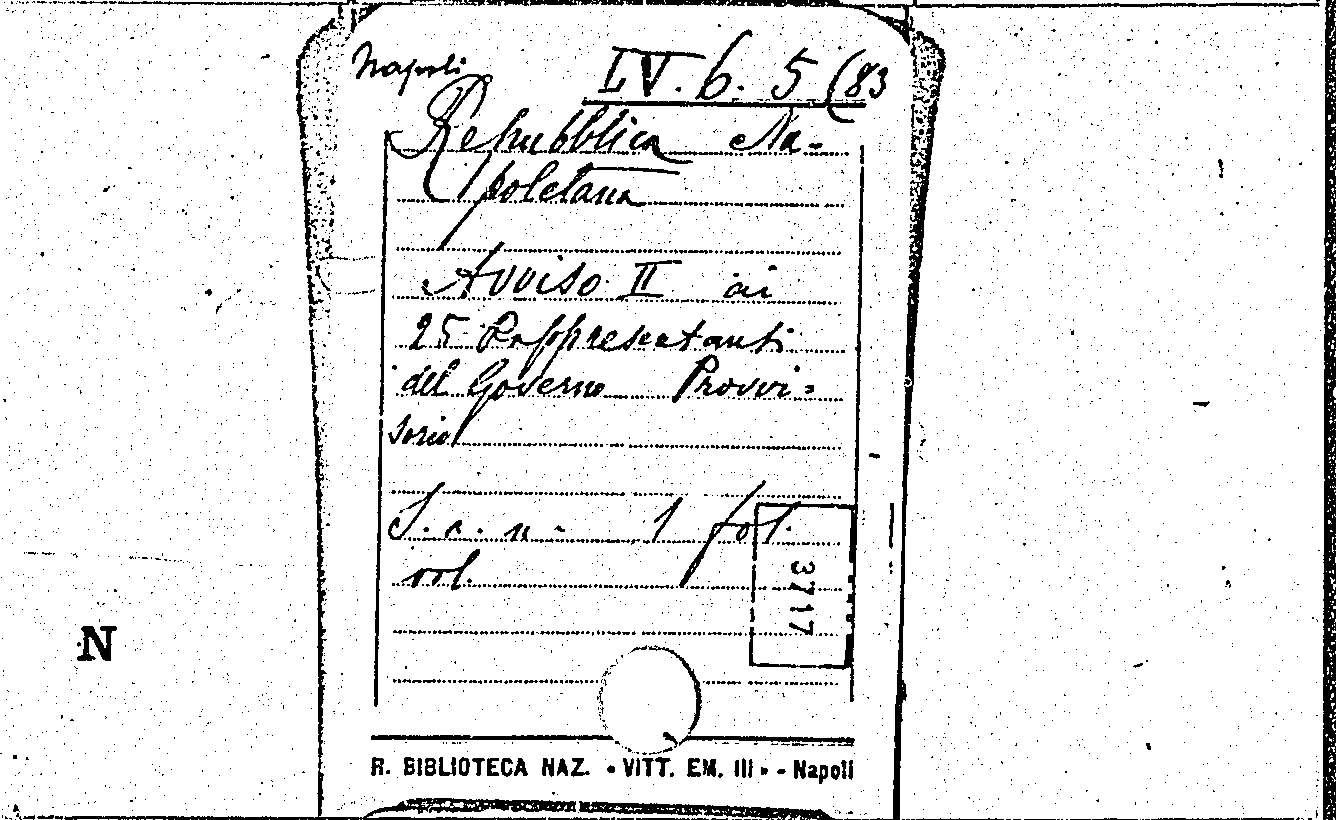 Napoli LV. 6. 5 (83
Repubblica Na-
poletana
Avviso II ai
25 Rappresentanti
del Governo Provvi=
sorio
S. a. n. 1 fol.
vol.
3717
N
R. BIBLIOTECA NAZ. « VITT. EM. III » - Napoli